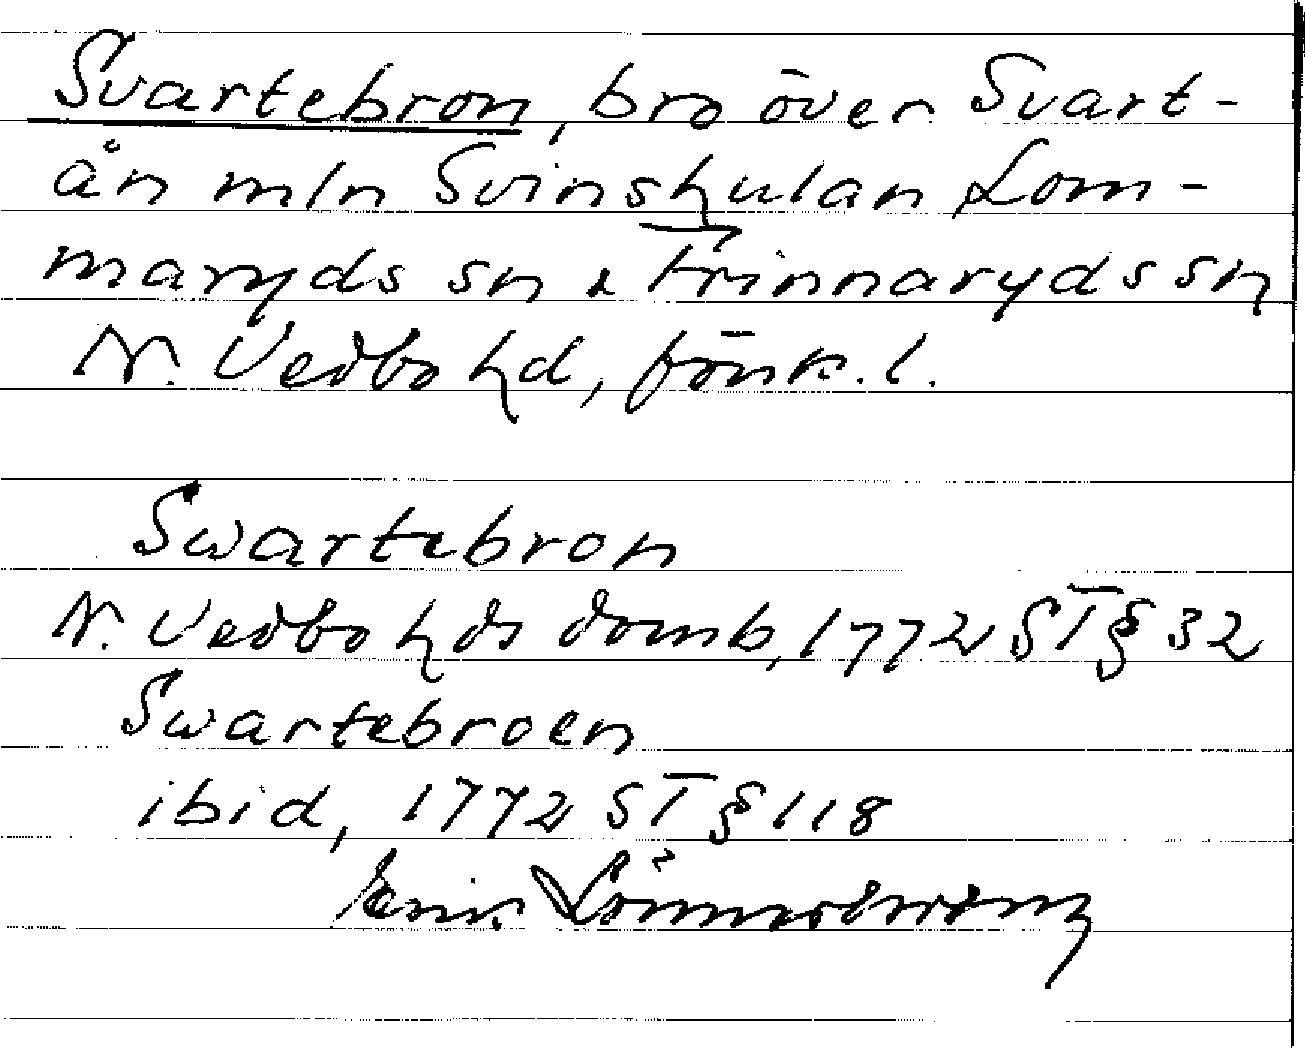 Svartebron, bro över Svart-
ån mln Svinskulan Lom-
maryds sn & Frinnaryds sn
N. Vedbo hd, Jönk. l.
Swartebron
N. Vedbo hds domb, 1772 ST § 32
Swartebroen
ibid, 1772 ST § 118
Erik